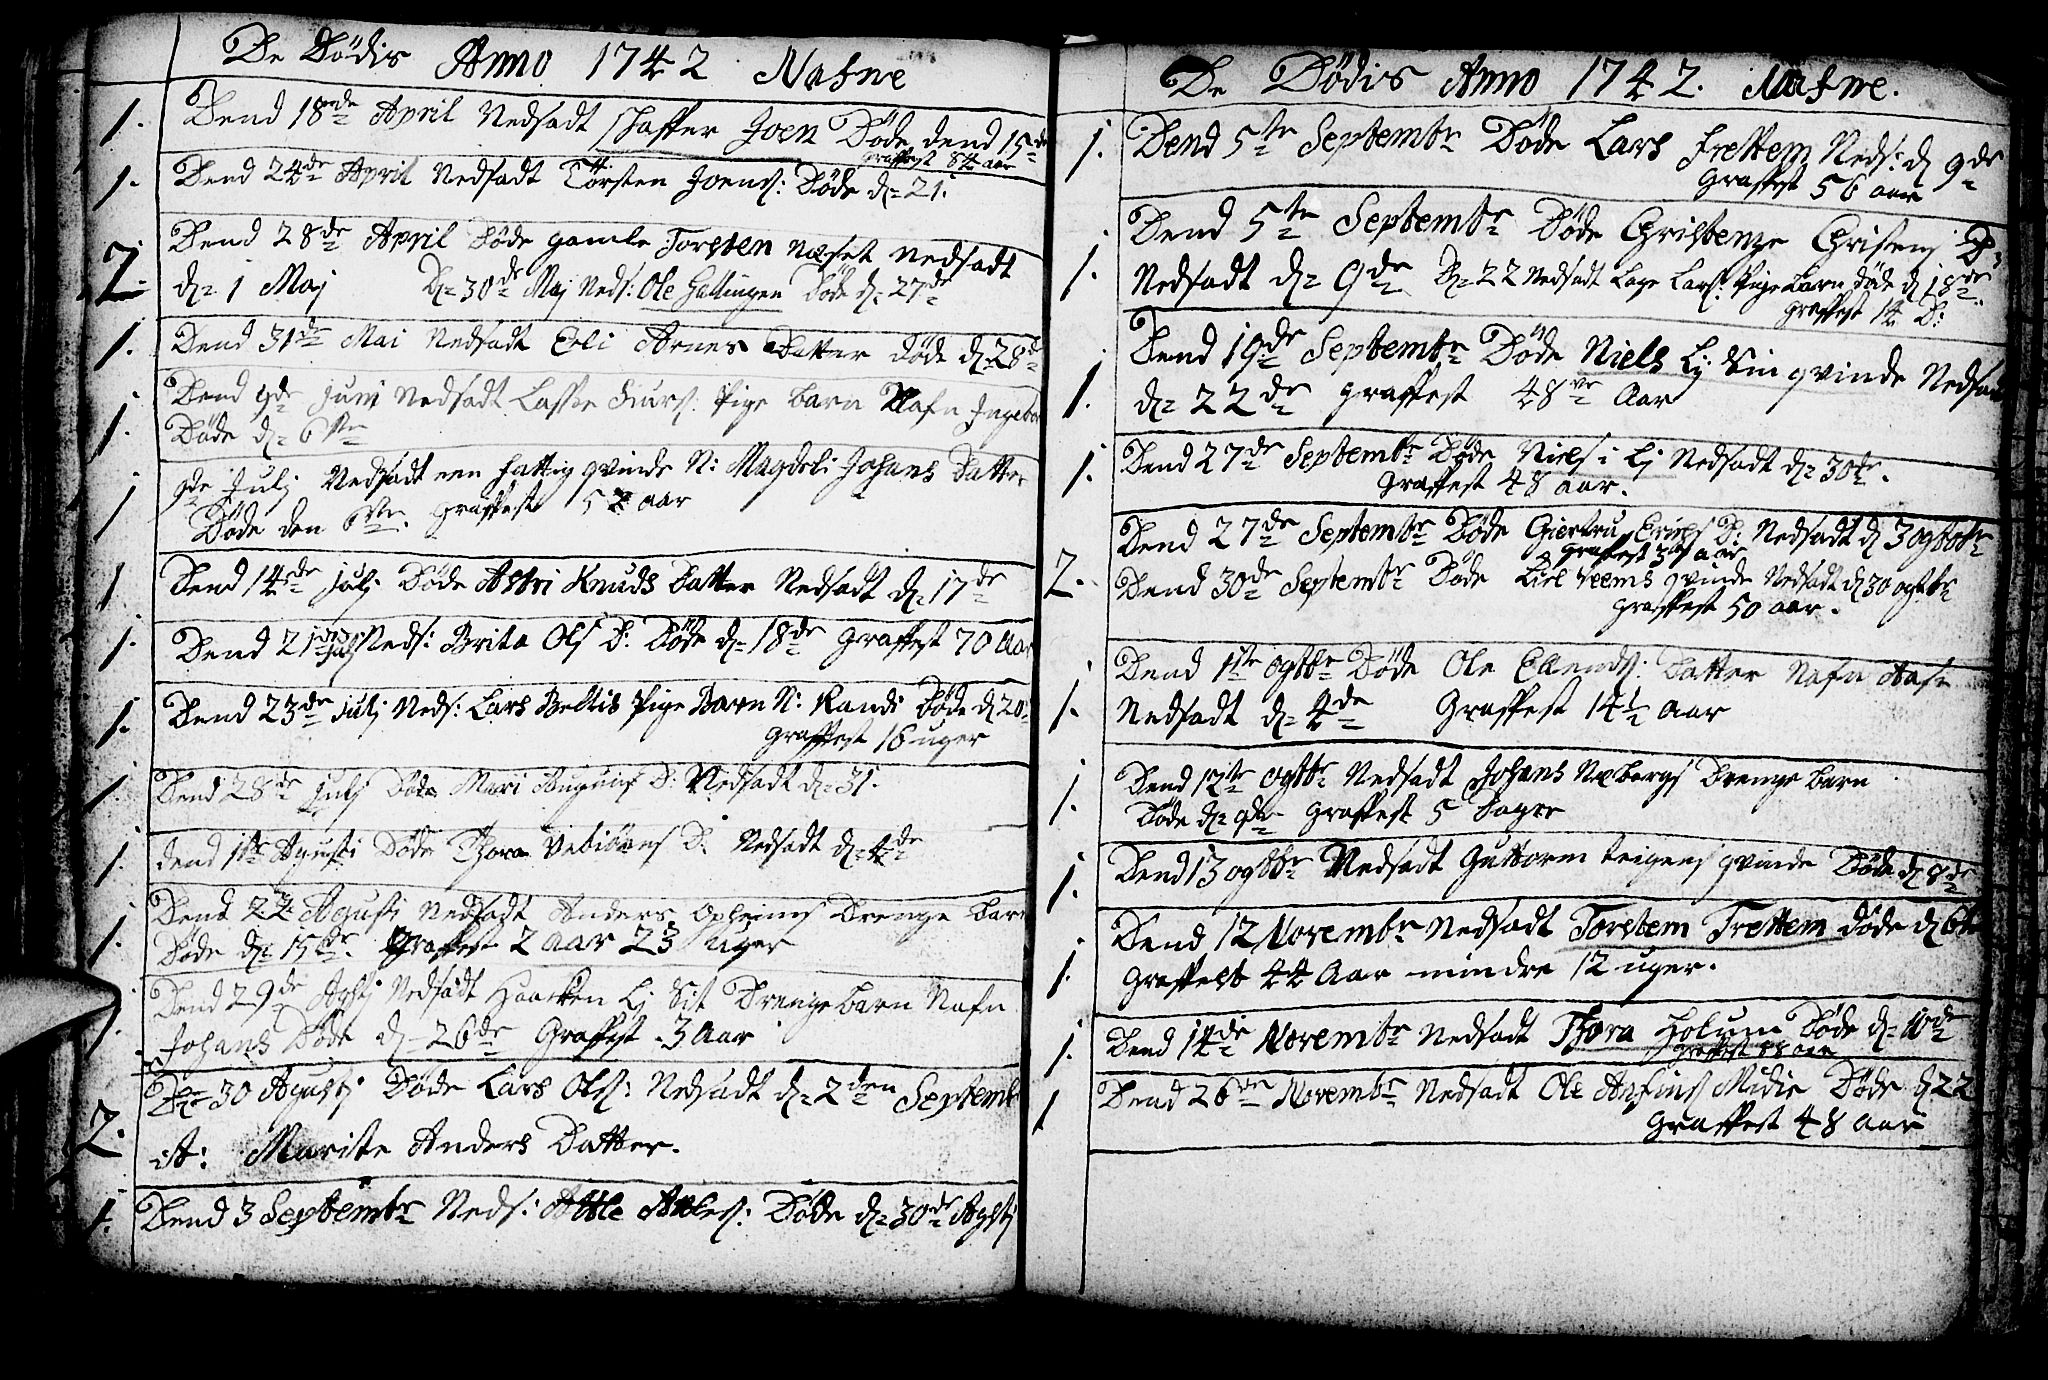 De Dödis Anno 1742 Nafne
1. Dend 18de April Nedsadt Skaffer Joen Döde dend 15de
graffest 84 aar
1. Dend 24de April Nedsadt Törsten Joens: Döde d. 21.
2. Dend 28de April Döde gamle Torsten Næset Nedsadt
d. 1 Maj D. 30de Maj Neds: Ole Hallingen Döde d. 27de
1. Dend 31de Mai Nedsadt Eli Arnes Datter Döde d. 28de
1. Dend 9de Junj Nedsadt Lasse Siurs: Pige barn Nafn Ingebor
Döde d. 6te
1 9de Julj Nedsadt een fattig qvinde N: Magdeli Johans Datter
Döde den 6te. graffest 52 aar
1 Dend 14de Julj Döde Astri Knuds Datter Nedsadt d. 17de
1. Dend 21de Julj Neds: Brita Ols D: Döde d. 18de graffest 70 Aar
1. Dend 23de Julj Neds: Lars Beltis Pige Barn N: Randi Döde d. 20
graffest 16 uger
1. Dend 28de Julj Döde Mari D: Nedsadt d. 31.
1. dend 1ste Agusti Döde Thora D. Nedsadt d. 4de
1. Dend 22. Agusti Nedsadt Anders Opheims Drenge Barn
Döde d. 15de. Graffest 2 aar 23 uger
1. Dend 29de Agstj Nedsadt Haacken Lj Sit Drenge barn Nafn
Johans Döde d. 26de Graffest 3 Aar
2. D. 30 Agustj Döde Lars Ols: Nedsadt d. 2den Septemb
it: Marite Anders Datter.
1. Dend 3 Septembr Neds: Atle Atles: Döde d. 30de Agstj
De Dödis Anno 1742. Nafne.
1. Dend 5te Septembr Döde Lars Frettem Neds: d. 9de
Graffest 56 aar
1. Dend 5te Septembr Döde Christenze Christens D:
Nedsadt d. 9de D. 22 Nedsadt Lars: Pige Barn Döde d. 18de.
graffest 14 D:
1. Dend 19de Septembr Döde Niels Lj Sin qvinde Nedsat
d. 22de graffest 48ve Aar
1. Dend 27de Septembr Döde Niels i Lj Nedsadt d. 30te.
Graffest 48 aar.
2. Dend 27de Septembr Döde Giertru Erichs D: Nedsadt d. 3 ogtobr
Graffest aar
Dend 30de Septembr Döde Seems qvinde Nedsadt d. 30 ogtbr
graffest 50 aar.
1. Dend 1ste ogtbr Döde Ole Datter Nafn Aase
Nedsadt d. 4de Graffest 14½ Aar
1. Dend 12te ogtbr Nedsadt Johans Næbergs Drenge barn
Döde d. 9de graffest 5 Dager
1. Dend 13 ogtbr Nedsadt Guttorm teigens qvinde Döde d. 8de
1. Dend 12 Novembr Nedsadt Torstem Trettem Döde d. 6te
graffest 44 Aar mindre 12 uger.
1. Dend 14de Novembr Nedsadt Thora Holum Döde d. 10de
graffest 88 aar
1 Dend 26de Novembr Nedsadt Ole Anfins Midie Döde d. 22
Graffest 48 aar